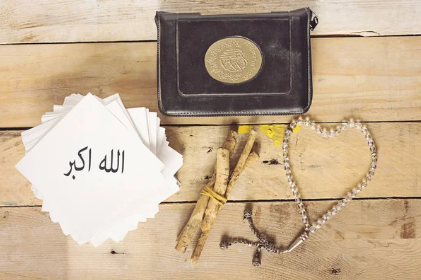 الله اكبر